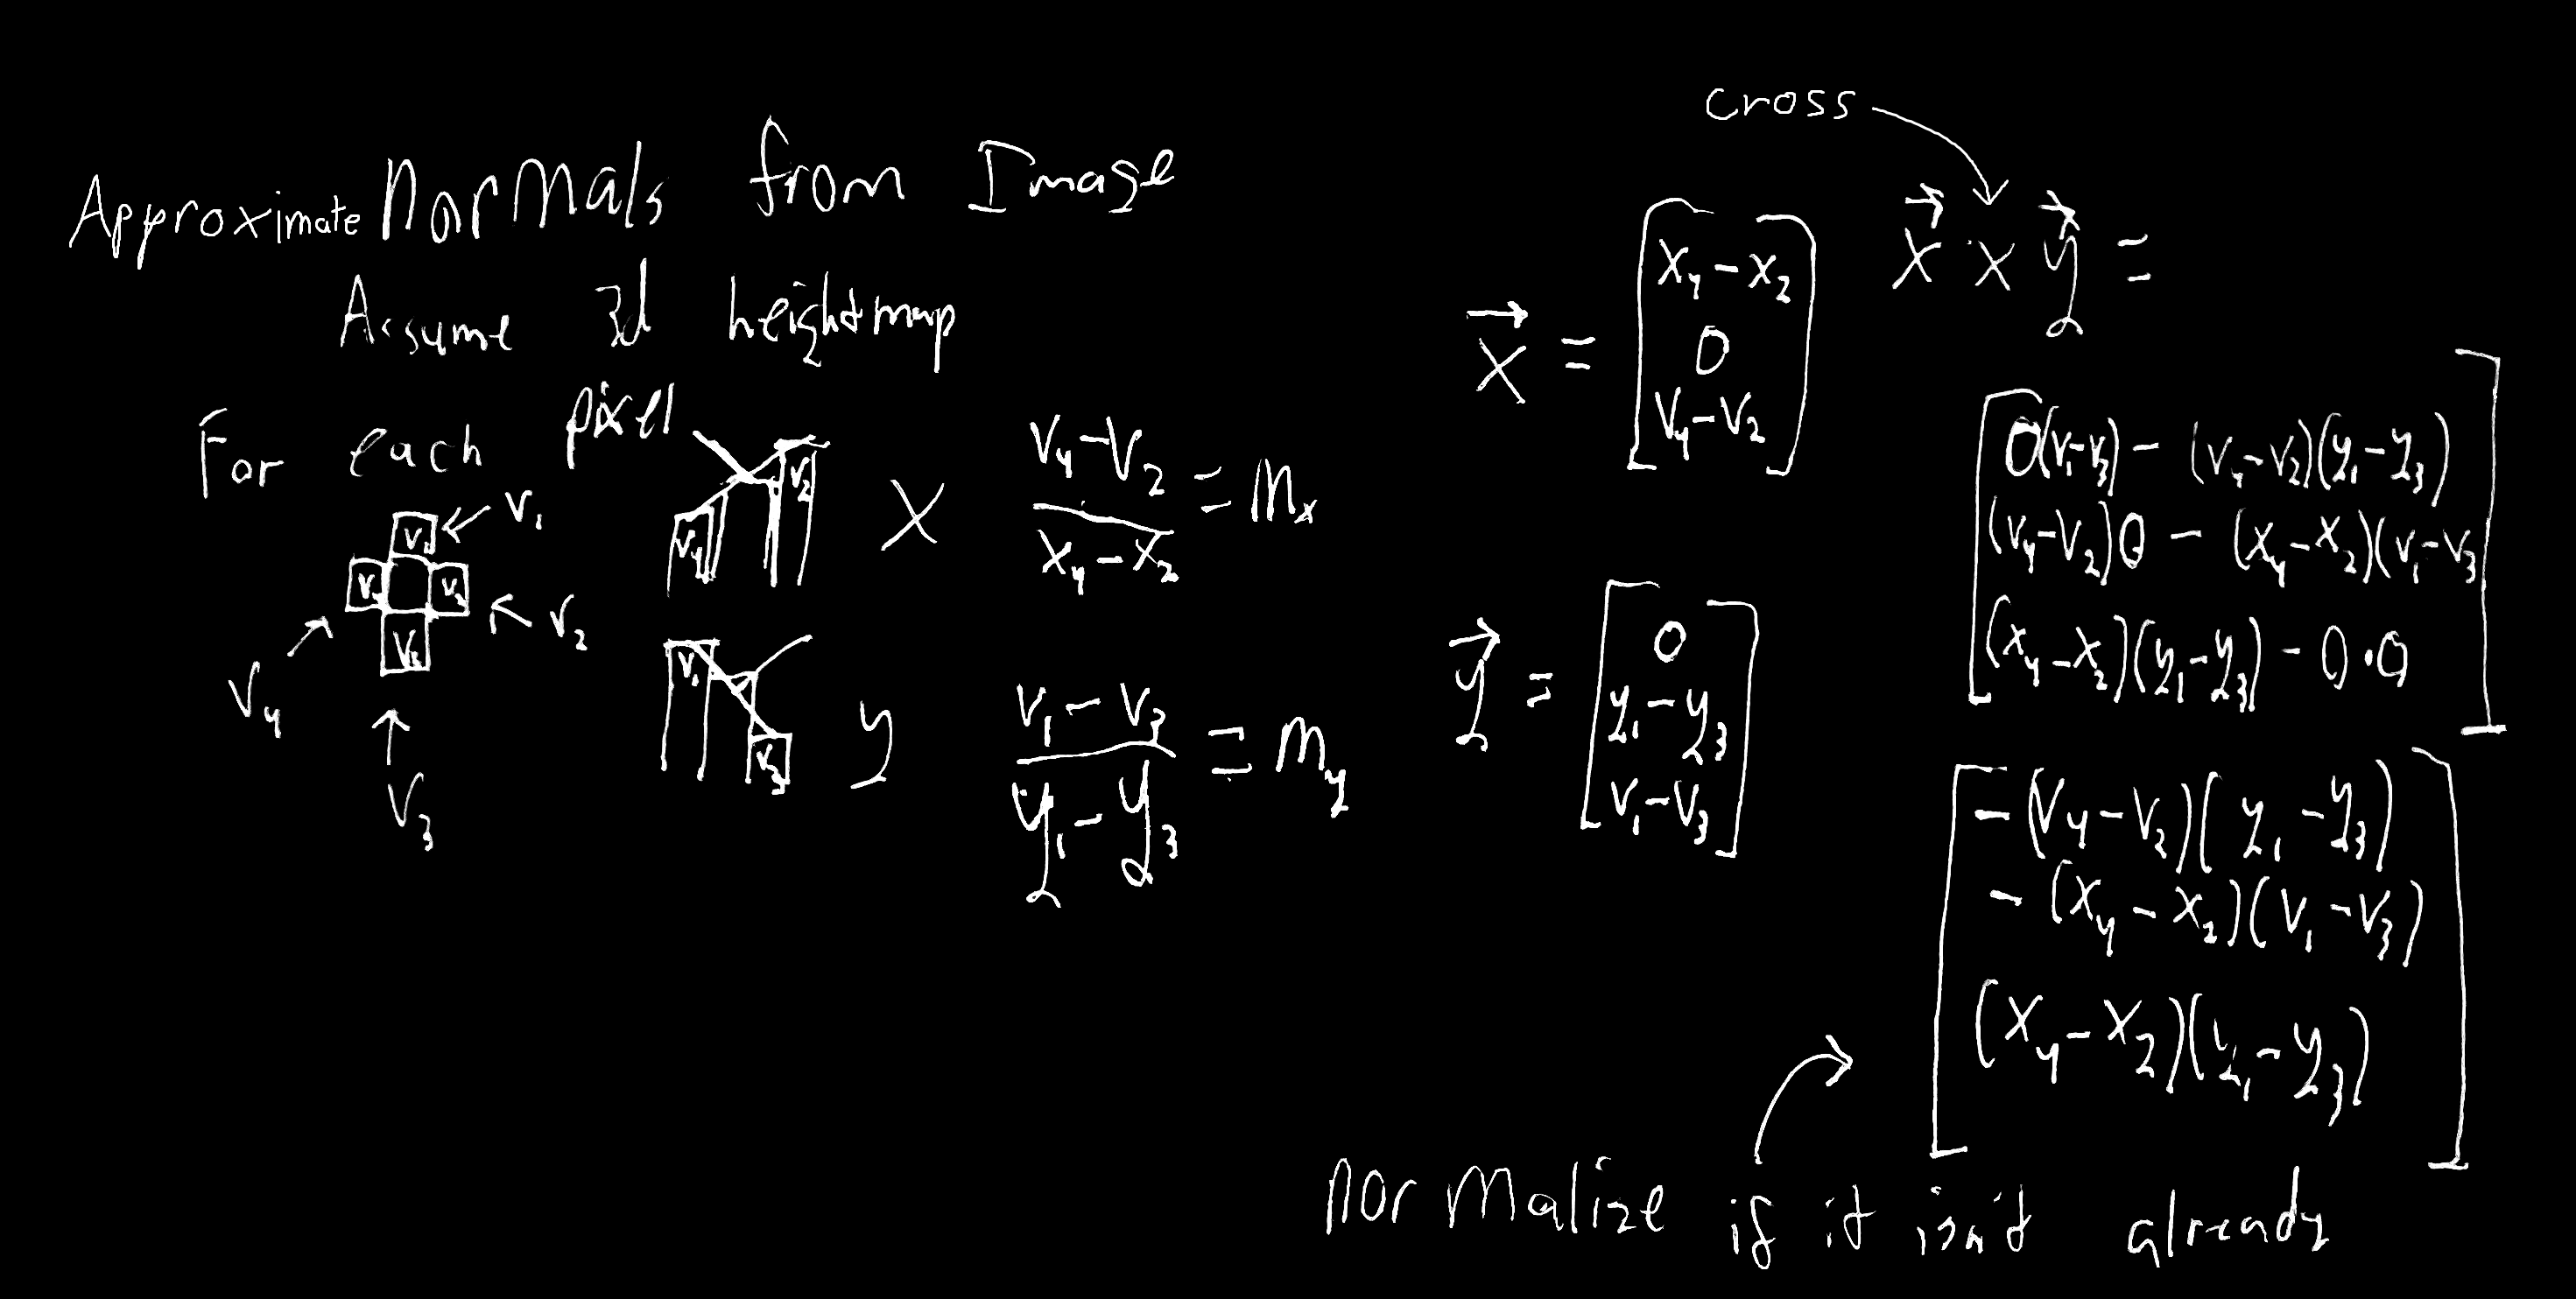 Approximate Normals from Image
Assume 3d heightmap
For each pixel
V₁
V₁
V₄ V₂
V₂
V₃
V₄
V₃
V₄ V₂
x (V₄-V₂)/(x₄-x₂) = mₓ
V₁ V₃
y (V₁-V₃)/(y₁-y₃) = m_y
x⃗ = [x₄-x₂
0
V₄-V₂]
y⃗ = [0
y₁-y₃
V₁-V₃]
cross
x⃗ × y⃗ =
[0(V₁-V₃) - (V₄-V₂)(y₁-y₃)
(V₄-V₂)0 - (x₄-x₂)(V₁-V₃
(x₄-x₂)(y₁-y₃) - 0·0]
[-(V₄-V₂)(y₁-y₃)
-(x₄-x₂)(V₁-V₃)
(x₄-x₂)(y₁-y₃)]
normalize if it isn't already